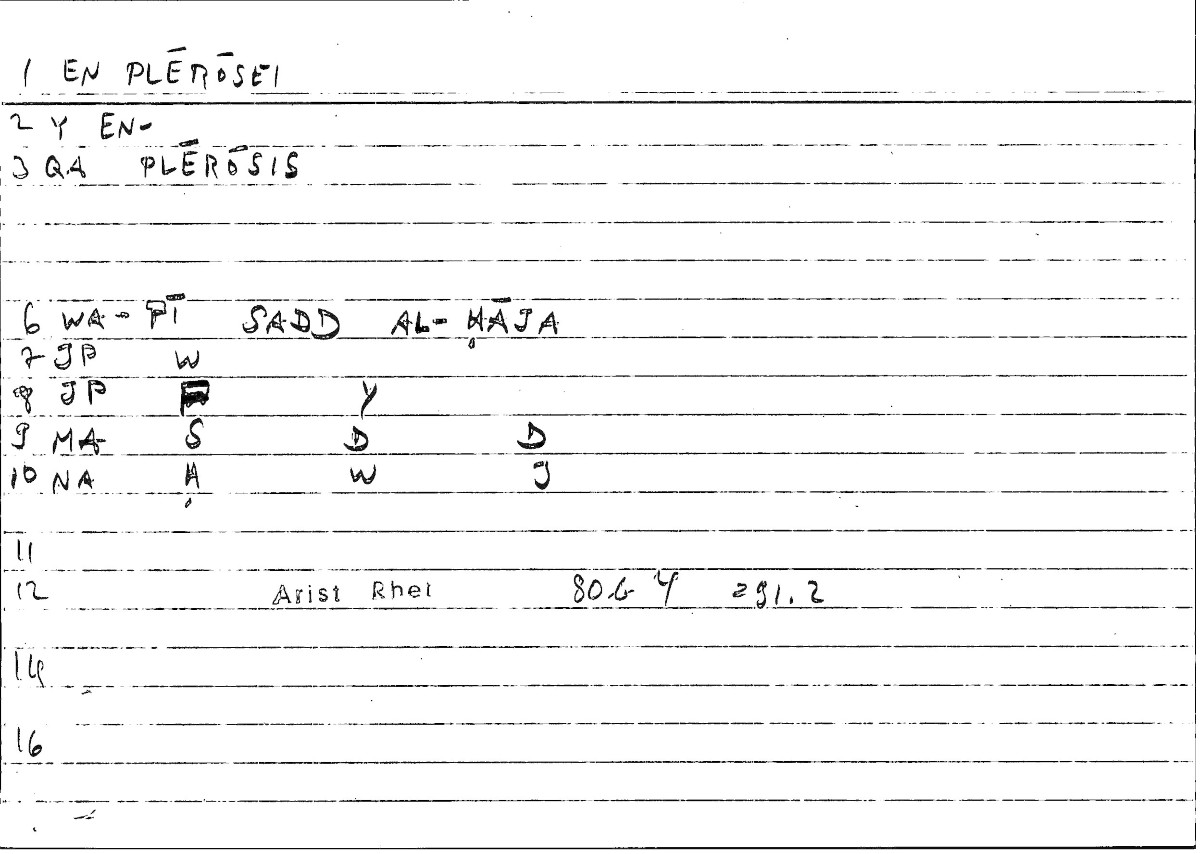 1 EN PLĒRŌSEI
2 Y EN-
3 QA PLĒRŌSIS
6 WA-FĪ SADD AL-ḤĀJA
7 JP W
8 JP F Y
9 MA S D D
10 NA Ḥ W J
11
12 Arist Rhet 80.6 4 291.2
14
16